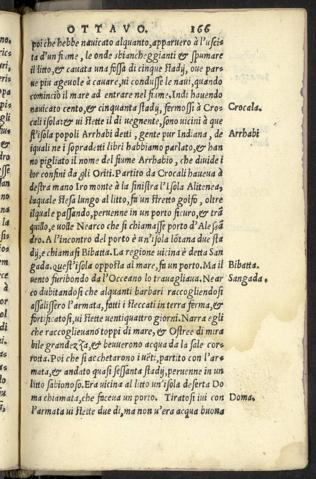 OTTAVO. 166
poi che hebbe nauicato alquanto, apparuero à l'usci
ta d'un fiume, le onde sbiancheggianti & spumare
il litto, & cauata una fossa di cinque stadij, oue par=
ue piu ageuole à cauare, ui condusse le naui, quando
comincio il mare ad entrare nel fiume. Indi hauendo
nauicato cento, & cinquanta stadij, fermossi à Cros Crocala.
cali isola: & ui stette il di uegnente, sono uicini à que
st'isola popoli Arrhabi detti, gente pur Indiana, de Arrhabi
iquali ne i sopradetti libri habbiamo parlato, & han
no pigliato il nome del fiume Arrhabio, che diuide i
lor confini da gli Oriti. Partito da Crocali haueua à
destra mano Iro monte à la sinistra l'isola Alitenea,
laquale stesa lungo al litto, fa un stretto golfo, oltre
ilquale passando, peruenne in un porto sicuro, & trã
quillo, e uolle Nearco che si chiamasse porto d'Alesã
dro. A l'incontro del porto è un'isola lõtana due sta
dij, e chiamasi Bibatta. La regione uicina è detta San
gada. quest'isola opposta al mare, fa un porto. Ma il Bibatta.
uento furibondo da l'Oceano lo trauagliaua. Near Sangada.
co dubitandosi che alquanti barbari raccogliendosi
assalissero l'armata, fatti i steccati in terra ferma, &
fortificatosi, ui stette uentiquattro giorni. Narra egli
che raccoglieuano toppi di mare, & Ostree di mira
bile grandezza, & beuuerono acqua da la sale cor=
rotta. Poi che si acchetarono i uẽti, partito con l'ar=
mata, & andato quasi sessanta stadij, peruenne in un
litto sabionoso. Era uicina al litto un'isola deserta Do
ma chiamata, che faceua un porto. Tiratosi iui con Doma.
l'armata ui stette due dì, ma non u'era acqua buona